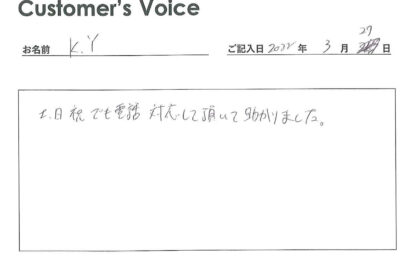 Customer's Voice
お名前 K.Y ご記入日 2022 年 3 月 29 日
土.日祝でも電話対応して頂いて助かりました。